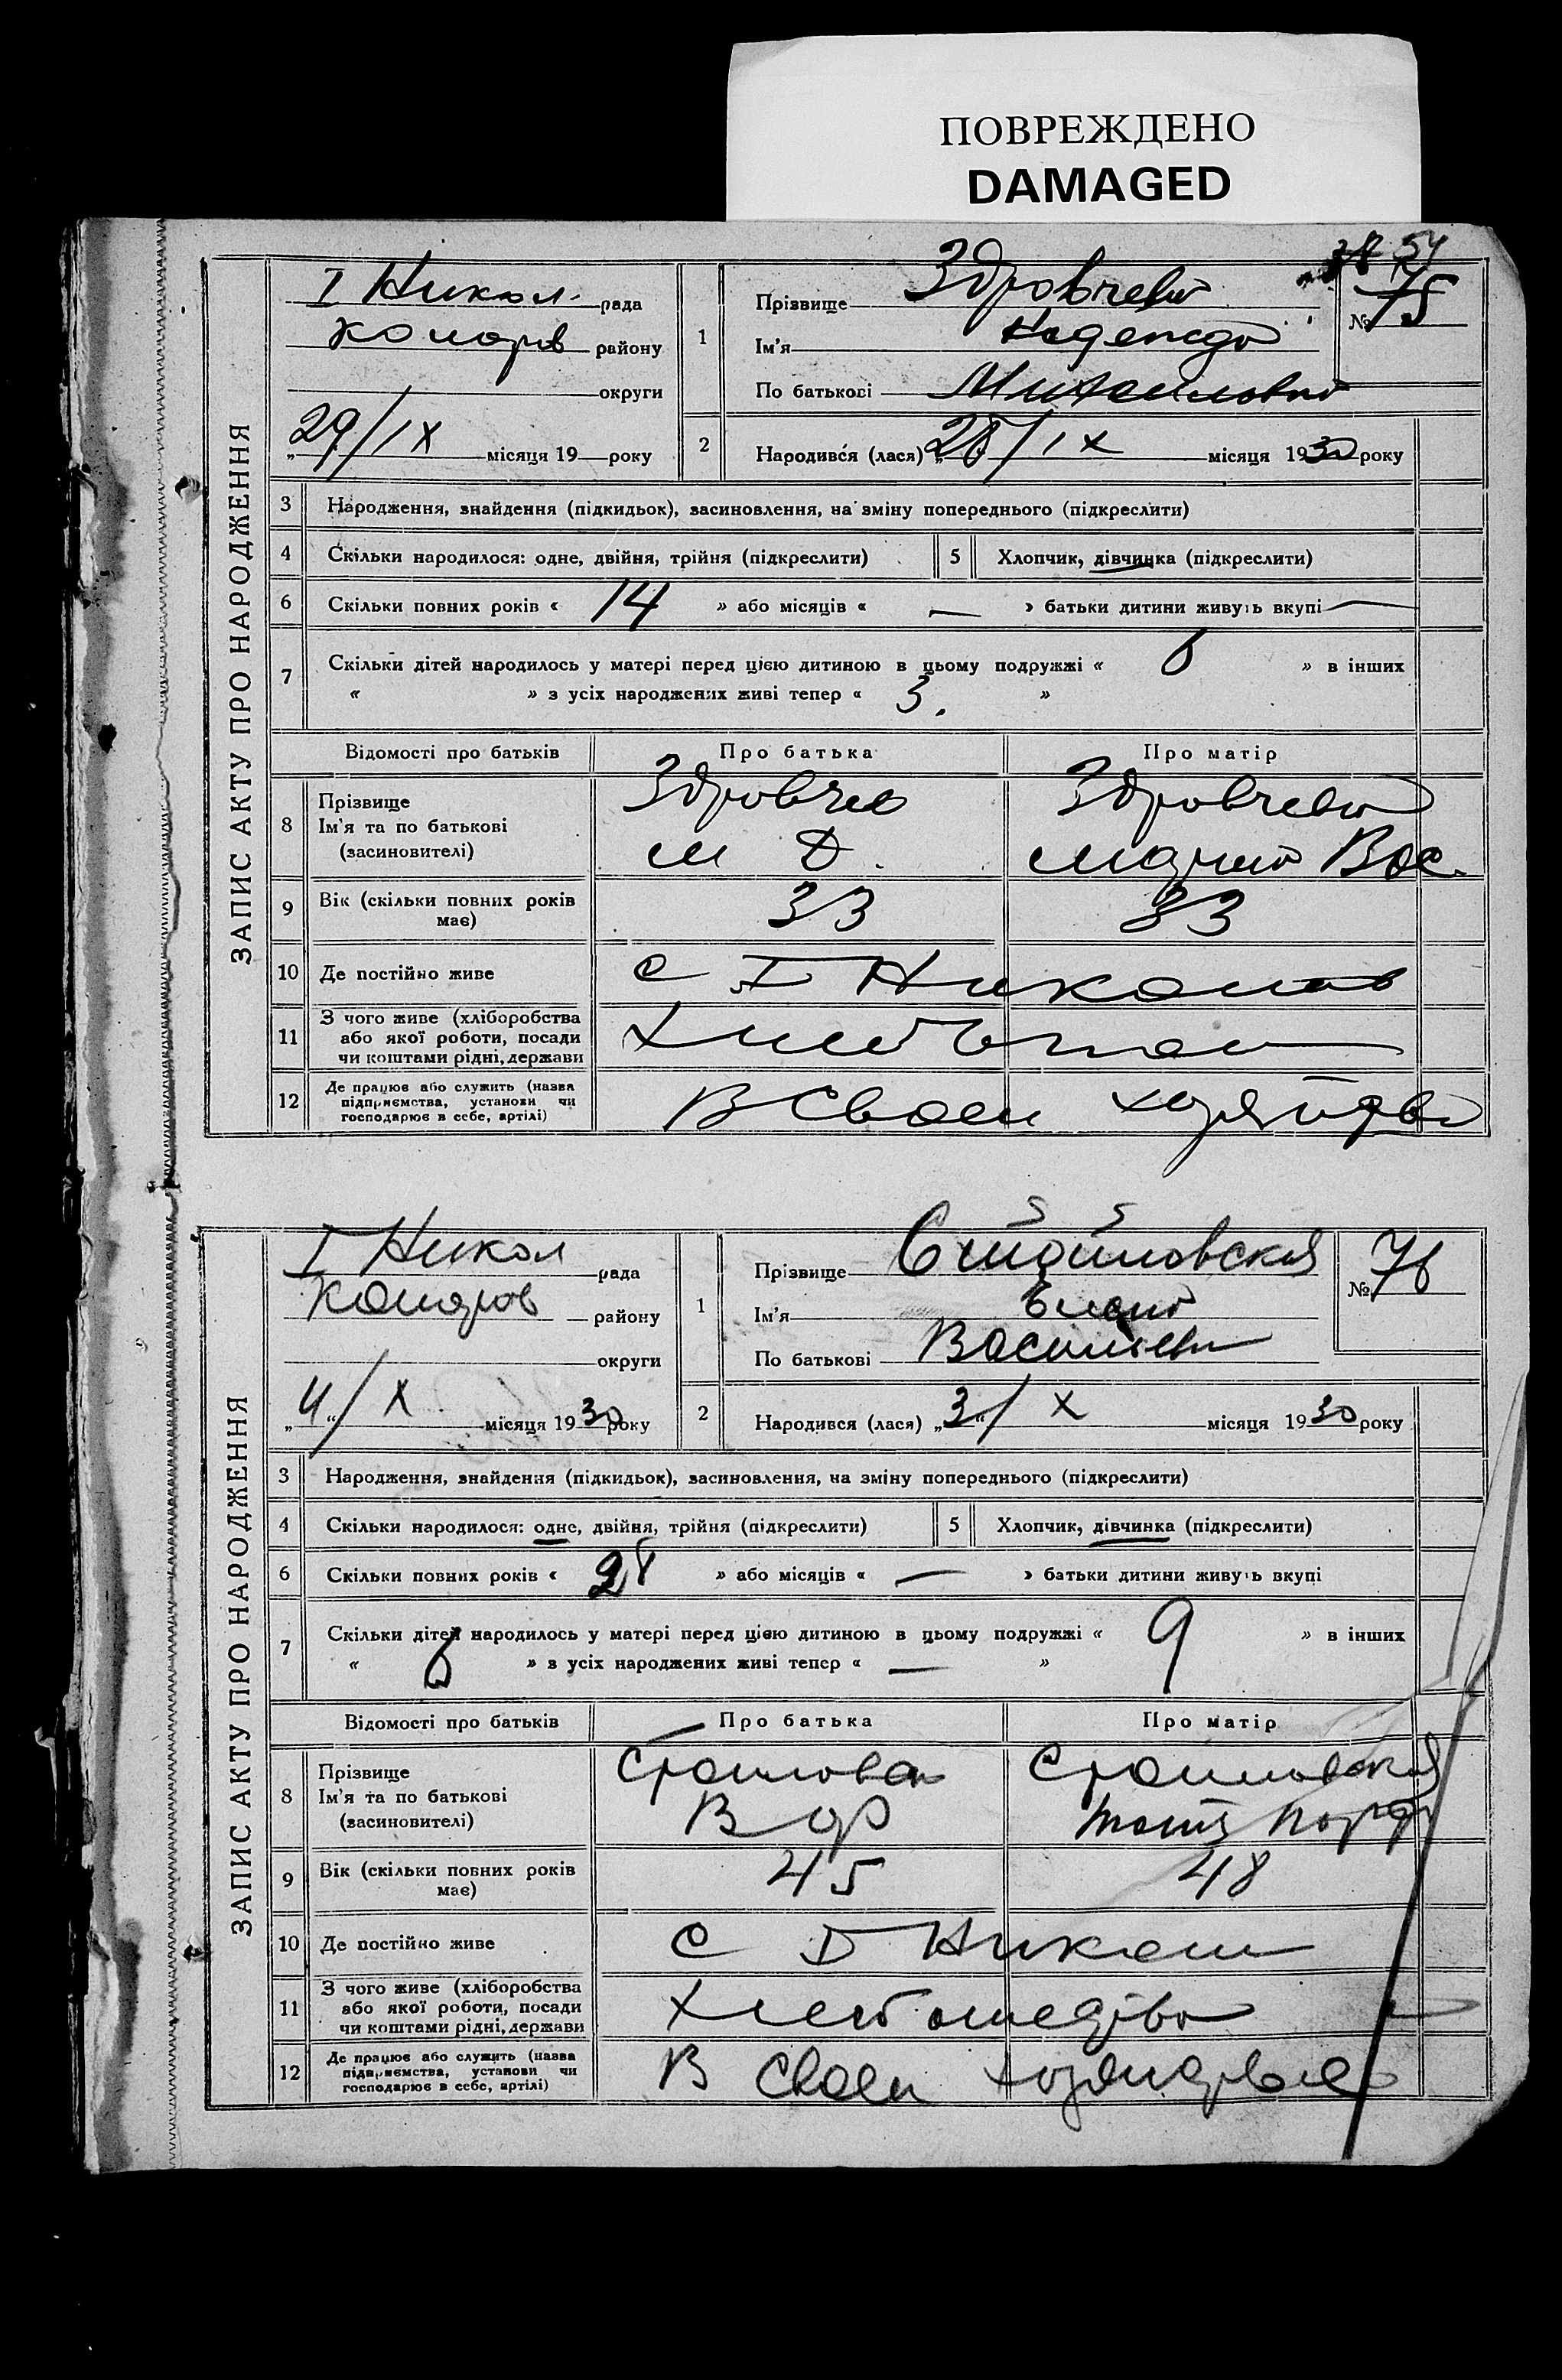 ПОВРЕЖДЕНО
DAMAGED
54
ЗАПИС АКТУ ПРО НАРОДЖЕННЯ
I Никол. рада
Комаров району
округи
29/IX місяця 19 року
1
Прізвище Здровчева
№ 75
Ім'я Надежда
По батькові Михаиловна
2
Народився (лася) „28/IX місяця 1930 року
3 Народження, знайдення (підкидьок), засиновлення, на зміну попереднього (підкреслити)
4 Скільки народилося: одне, двійня, трійня (підкреслити) 5 Хлопчик, дівчинка (підкреслити)
6 Скільки повних років « 14 » або місяців « — » батьки дитини живуть вкупі —
7 Скільки дітей народилось у матері перед цією дитиною в цьому подружжі « 6 » в інших
« » з усіх народжених живі тепер « 3. »
Відомості про батьків Про батька Про матір
8 Прізвище
Ім'я та по батькові
(засиновителі)
Здровчев
М
Здровчева
Вас.
9 Вік (скільки повних років
має)
33 33
10 Де постійно живе с I Николов
11 З чого живе (хліборобства
або якої роботи, посади
чи коштами рідні, держави
12 Де працює або служить (назва
підприємства, установи чи
господарює в себе, артілі)
В своем хозяйстве
ЗАПИС АКТУ ПРО НАРОДЖЕННЯ
I Никол рада
Комаров району
округи
„4“/X місяця 1930 року
1
Прізвище Стойловская
№ 76
Ім'я Елена
По батькові Васильевн
2
Народився (лася) „3“/X місяця 1930 року
3 Народження, знайдення (підкидьок), засиновлення, на зміну попереднього (підкреслити)
4 Скільки народилося: одне, двійня, трійня (підкреслити) 5 Хлопчик, дівчинка (підкреслити)
6 Скільки повних років « 28 » або місяців « — » батьки дитини живуть вкупі
7 Скільки дітей народилось у матері перед цією дитиною в цьому подружжі « 9 » в інших
« 6 » з усіх народжених живі тепер « — »
Відомості про батьків Про батька Про матір
8 Прізвище
Ім'я та по батькові
(засиновителі)
В
9 Вік (скільки повних років
має)
45 48
10 Де постійно живе с I Никол
11 З чого живе (хліборобства
або якої роботи, посади
чи коштами рідні, держави
12 Де працює або служить (назва
підприємства, установи чи
господарює в себе, артілі)
В своем хозяйстве